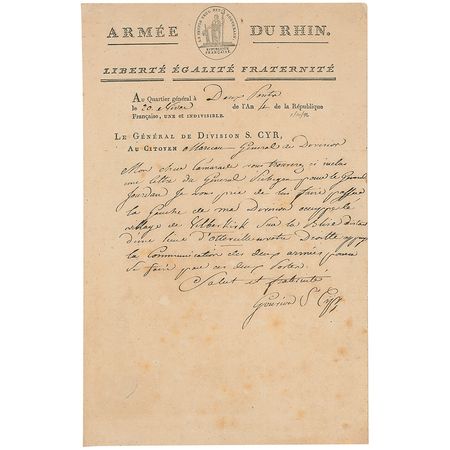 ARMÉE DU RHIN.
RÉPUBLIQUE FRANÇAISE
LIBERTÉ ÉGALITÉ FRATERNITÉ
Au Quartier général à Deux Ponts
le 20 de l'An 4 de la République
Française, UNE ET INDIVISIBLE.
LE GÉNÉRAL DE DIVISION S. CYR,
AU CITOYEN Marceau Général de Division
Mon cher Camarade vous trouverez ci inclus
une lettre du Général Pichegru pour le Général
Jourdan Je vous prie de lui faire passer
la Gauche de ma Division occupe le
village de sur la Blise distant
d'une lieue d'Ottweiller votre Droite
la communication des deux armées pourra
se faire par ces deux Postes.
Salut et fraternité
Gouvion St Cyr